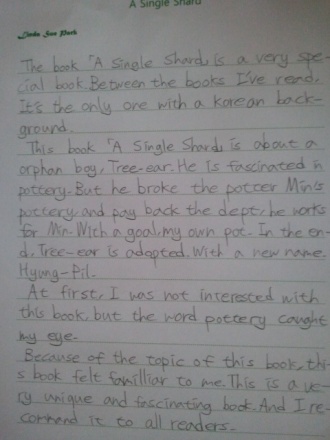 A Single Shard
Linda Sue Park
The book 「A Single Shard」 is a very spe-
cial book. Between the books I've read,
It's the only one with a korean back-
ground.
This book 「A Single Shard」 is about a
orphan boy, Tree-ear. He is fascinated in
pottery. But he broke the potter Min's
pottery. and pay back the dept, he works
for Min. With a goal, my own pot. In the en-
d, Tree-ear is adopted. With a new name.
Hyung-Pil.
At first, I was not interested with
this book. but the word pottery caught
my eye.
Because of the topic of this book, thi-
s book felt familliar to me. This is a ve-
ry unique and fascinating book. And I re-
command it to all readers.